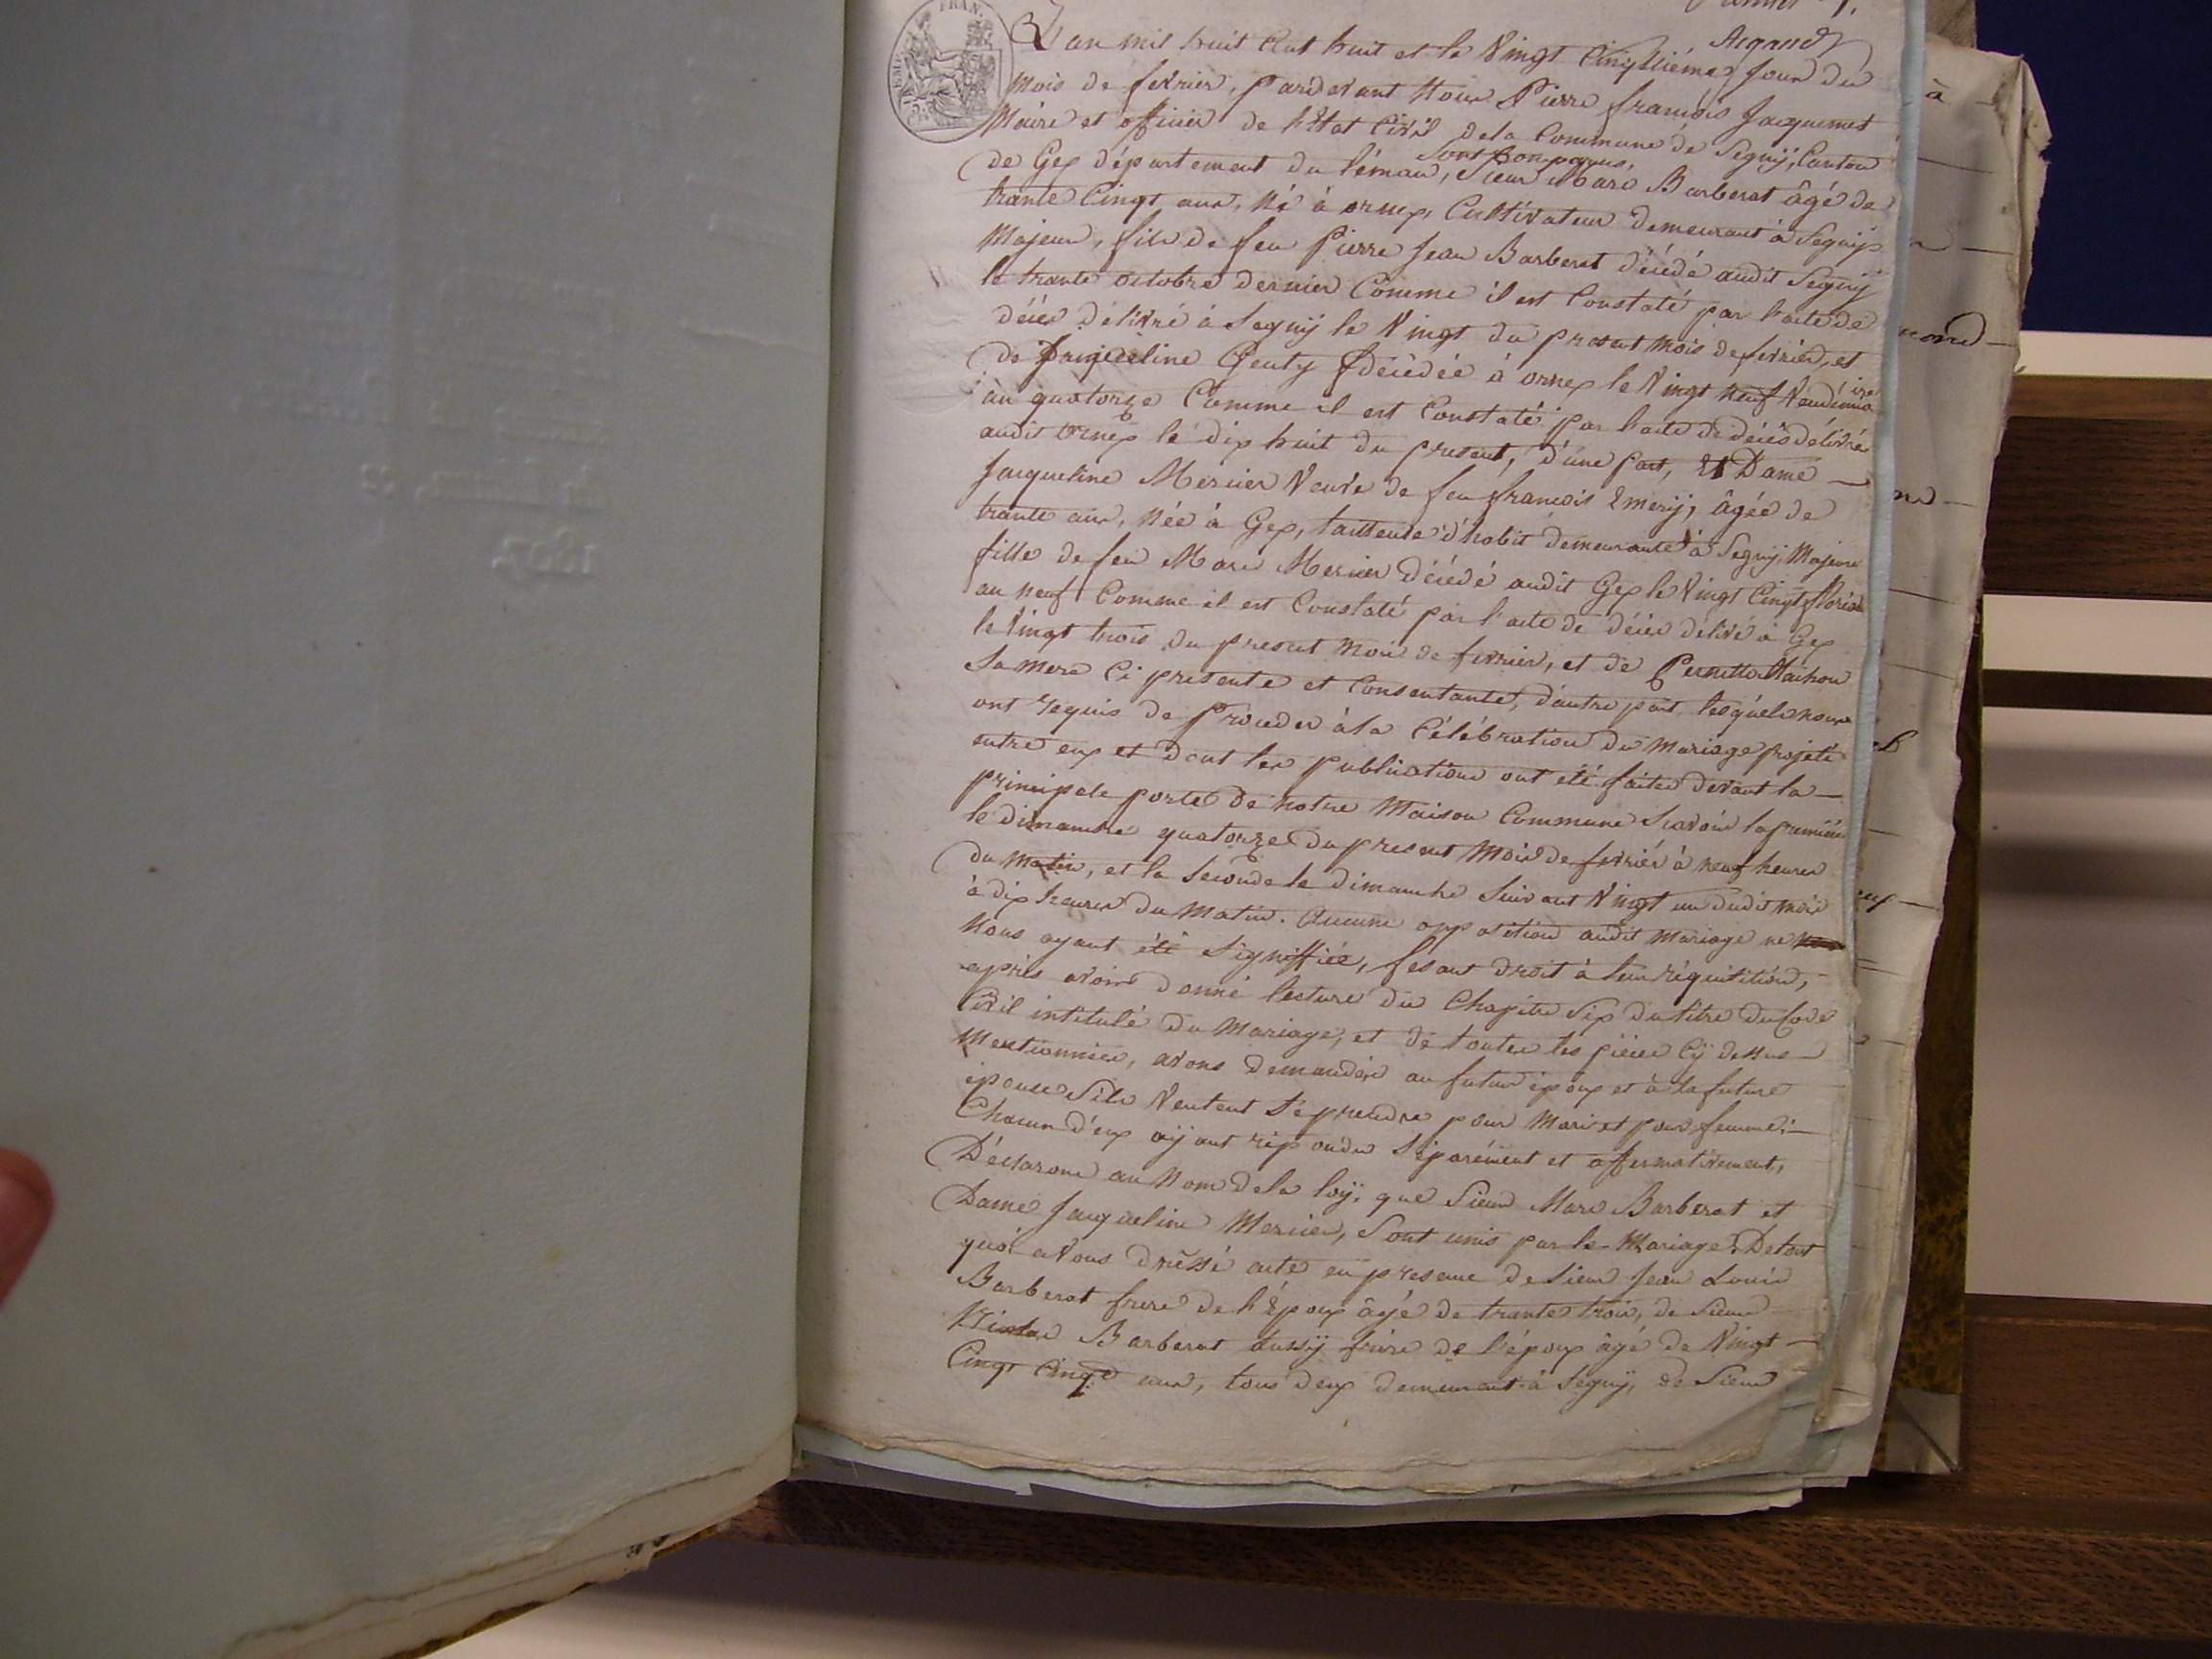 FRAN.
Argand
L'an mil huit Cent huit et le Vingt Cinquiéme Jour du
Mois de fevrier, pardevant Nous Pierre françois Jacquemet
Maire et officier de l'Etat Civil dela Commune de Segnÿ, Canton
Sont Comparus,
de Gex département du Léman, Sieur Marc Barberat âgé de
trante Cinqt ans, Né à ornex, Cultivateur demeurant à Segnÿ
Majeur, fils de feu Pierre Jean Barberat décédé audit Segnÿ
le trante octobre dernier Comme il est Constaté par l'acte de
décés délivré à Segnÿ le Vingt du present mois de fevrier, et
de Jaquéeline Genty décédée à ornex le Vingt neuf Vendémiaire
an quatorze Comme il est Constaté par l'acte de décés délivré
audit Ornex le dix huit du present, d'une part, Et Dame
Jacqueline Mercier Veuve de feu francois Emerÿ, âgée de
trante ans, née à Gex, tailleuse d'habit demeurante à Segnÿ, Majeure
fille de feu Marc Mercier décédé audit Gex le Vingt Cinqt floréal
an neuf Comme il est Constaté par l'acte de décés délivé à Gex
le Vingt trois du present mois de fevrier, et de Pernette
Sa mere Ci presente et Consentante, d'autre part, lesquels nous
ont requis de Proceder à la Célébration du mariage projeté
entre eux et dont les publications ont été faites devant la
principale porte de notre Maison Commune Scavoir la premiére
le dimanche quatorze du present mois de fevrier à neuf heures
du matin, et la Seconde le dimanche Suivant Vingt un dudit mois
à dix heures du matin. Aucune opposition audit mariage ne
Nous ayant été Signiffiée, fesant droit à leur réquisition,
après avoir donné lecture du Chapitre Six du titre du Code
Civil intitulé du Mariage, et de toutes les piéces Cÿ dessus
Mentionnées, avons demandéés au futur époux et à la future
épouse S'ils Veulent Se prendre pour Mari et pour femme;
Chacun d'eux aÿant répondu Séparément et affermativement,
Déclarons au Nom dela loÿ, que Sieur Marc Barberat et
Dame Jacqueline Mercier, Sont unis par le Mariage. De tout
quoi avons dressé acte en presence de Sieur Jean Louis
Barberat frere de l'Epoux âgé de trante trois, de Sieur
Barberat aussÿ frére de l'époux âgé de Vingt
Cinqt Cinqt ans, tous deux demeurant à Segnÿ, de Sieur
1807
à